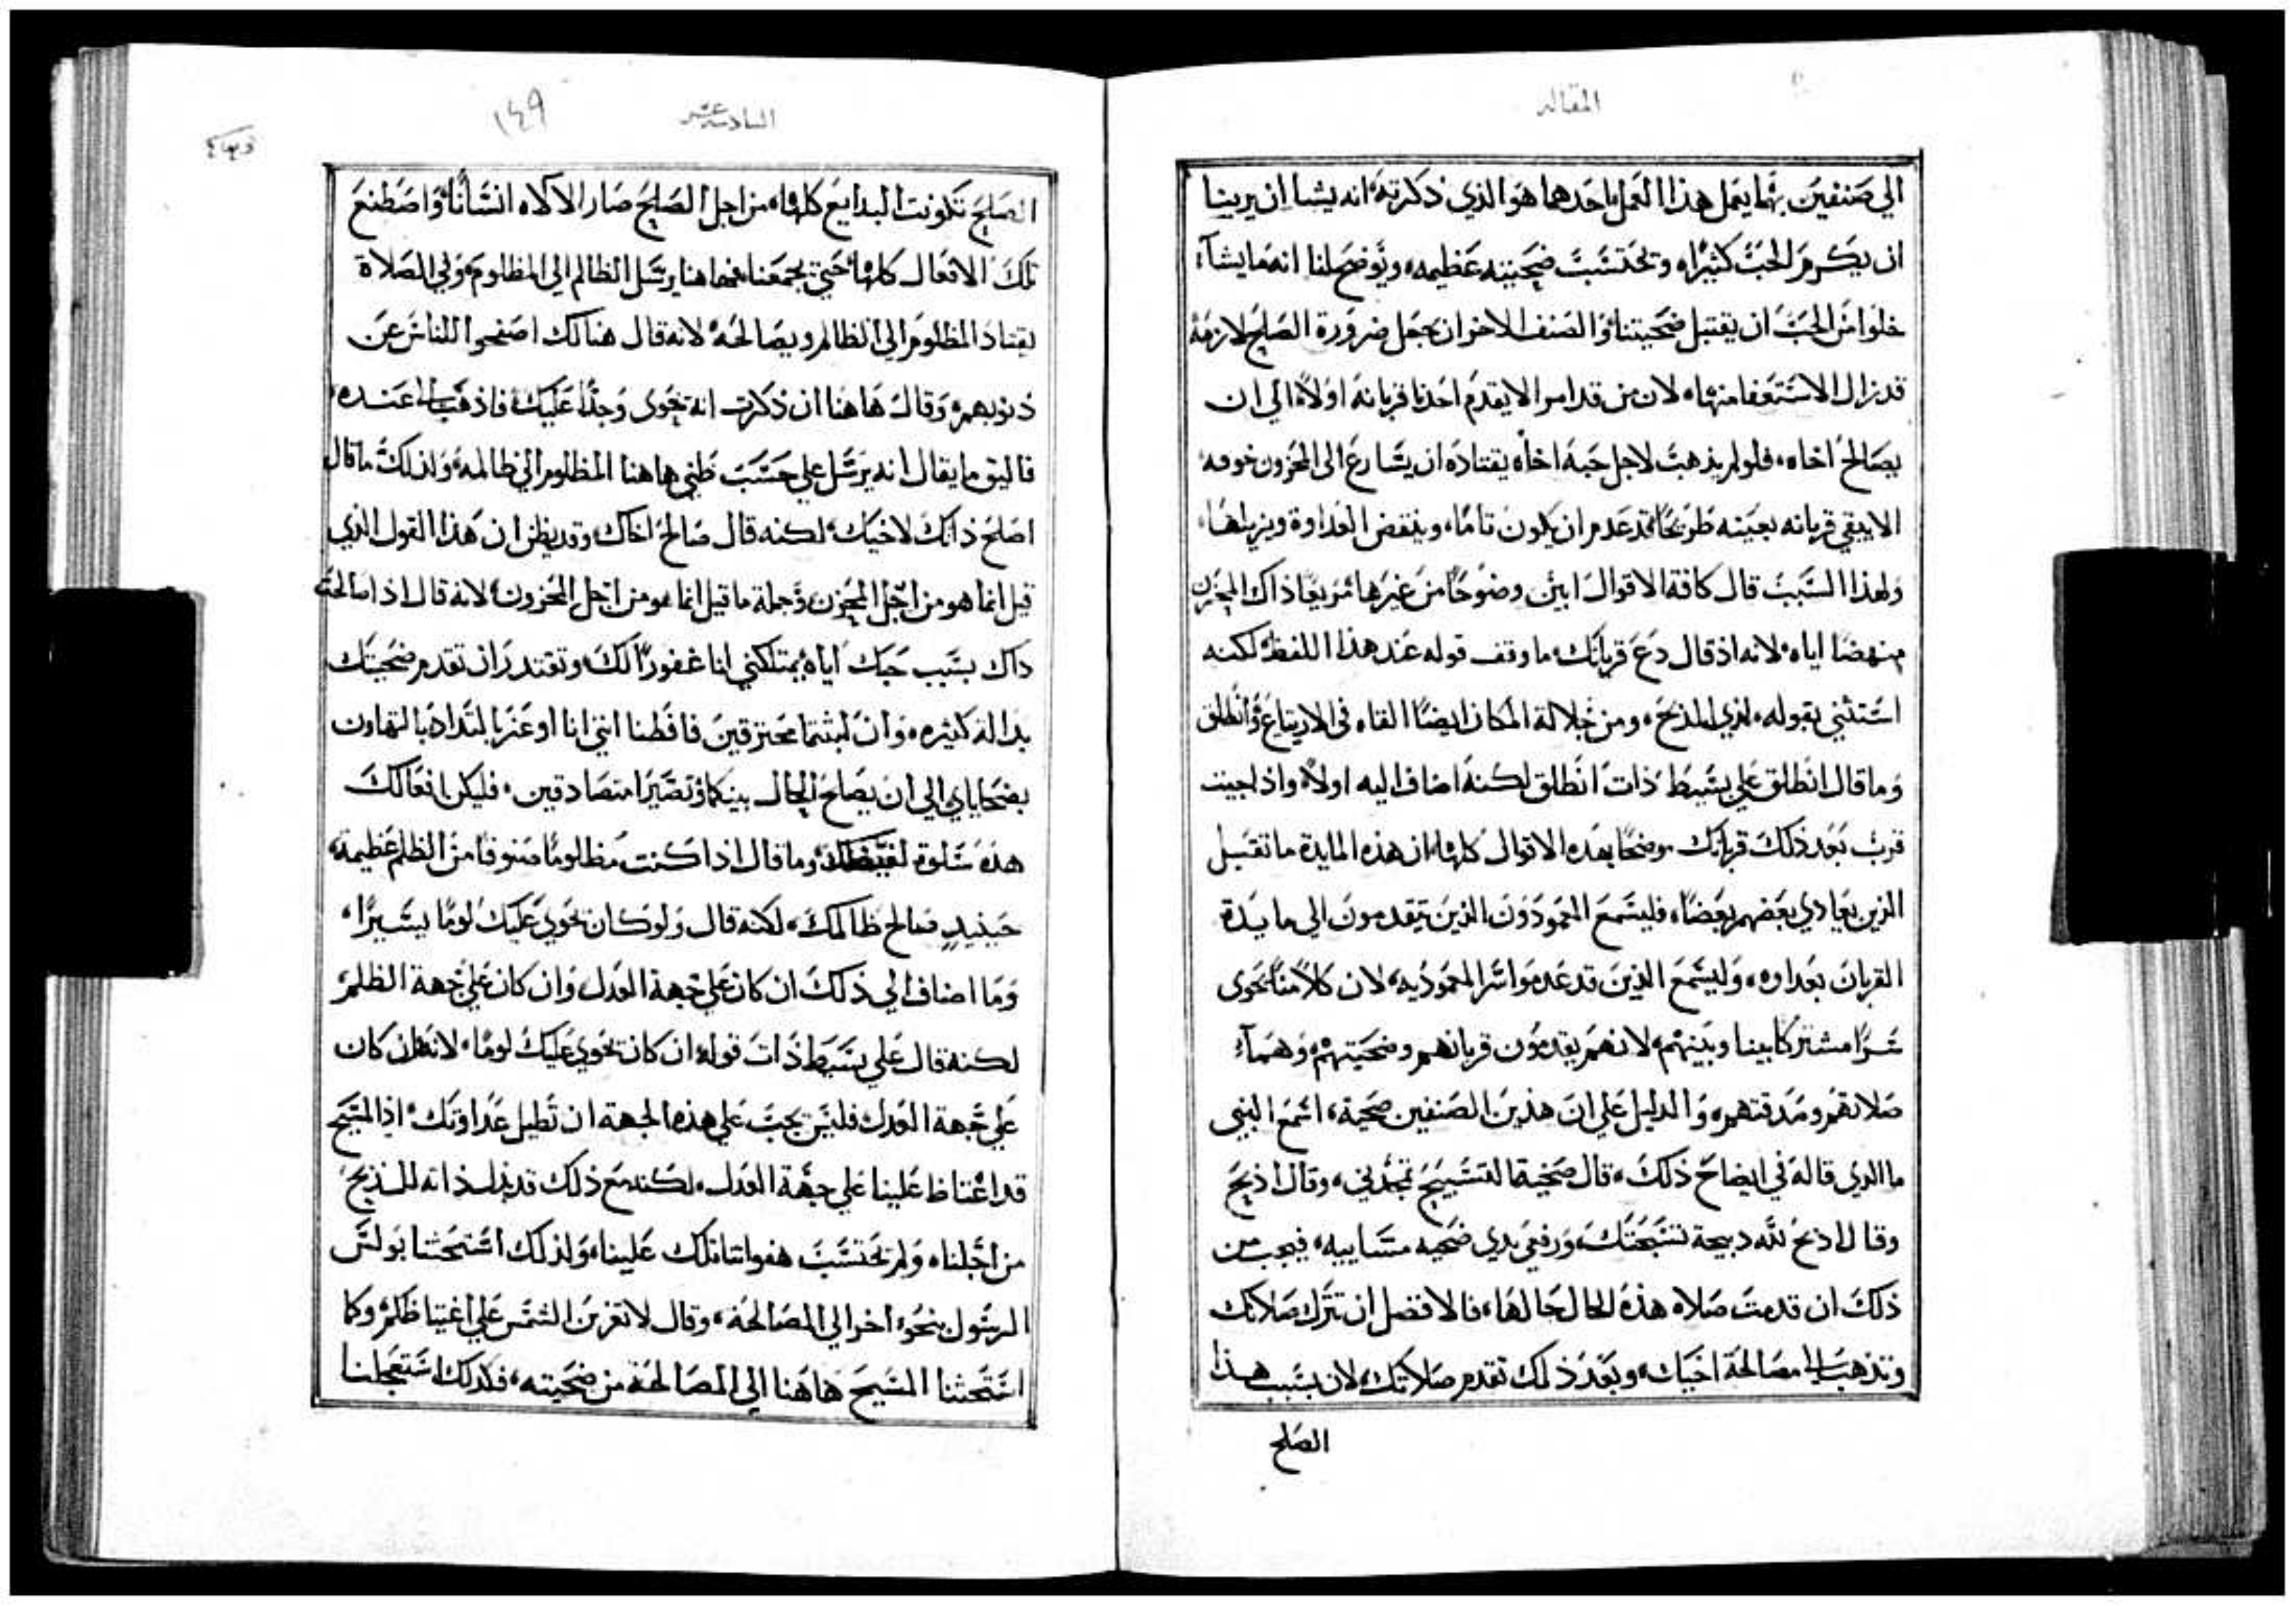 المقاله
الي صنفين بهما يعمل هذا العمل احدهما هو الذي ذكرته انه يشا ان يرينا
ان يكرم الحب كثيرا وتحتسب ضحيته عظيمه ويوضح لنا انه ما يشآء
خلوا من الحب ان يقتبل ضحيتنا والصنف الاخر ان جعل ضرورة الصلح لازمة
قد زال الاستعفا منها لان من قد امر الا يقدم احدنا قربانه اولا الي ان
يصالح اخاه فلو لم يذهب لاجل حبه اخاه يقتاده ان يسارع الى المحزون خوفه
الا يبقي قربانه بعينه طريحا قد عدم ان يكون تاما وينقض العداوة ويزيلها
ولهذا السبب قال كافة الاقوال ابين وضوحا من غيرها مريعا ذاك المحزن
منهضا اياه لانه اذ قال دع قربانك ما وقف قوله عند هذا اللفظ لكنه
استثني بقوله لدي المذبح ومن جلالة المكان ايضا القاه في الارتياع وانطلق
وما قال انطلق علي بسيط ذات انطلق لكنه اضاف اليه اولا واذا جيت
قرب بعد ذلك قربانك موضحا بهده الاقوال كلها ان هذه المايدة ما تقبل
الذين يعادي بعضهم بعضا فليسمع المعمودون الذين يتقدمون الي مايدة
القربان بعداوه وليسمع الذين قد عدموا سر المعموديه لان كلامنا يحوى
شرا مشتركا بيننا وبينهم لانهم يقدمون قربانهم وضحيتهم وهمآء
صلاتهم وصدقتهم والدليل علي ان هذين الصنفين ضحية اسمع النبي
ما الدي قاله في ايضاح ذلك قال ضحية التسبيح تمجدني وقال اذبح
وقال اذبح لله دبيحة تسبحتك ورفع يدي ضحيه مسآييه فيجب من
ذلك ان قدمت صلاه هذه الحال حالها فالافضل ان تترك صلاتك
وتذهب الي مصالحة اخيك وبعد ذلك تقدم صلاتك لان بسبب هذا
الصلح
السادسه عشر
١٤٩
الصلح تكونت البدايع كلها من اجل الصلح صار الالاه انسانا واصطنع
تلك الافعال كلها حتي يجمعنا فهاهنا يرسل الظالم الي المظلوم وفي الصلاة
يقتاد المظلوم الي الظالم ويصالحه لانه قال هنالك اصفحوا للناس عن
ذنوبهم وقال هاهنا ان ذكرت انه يحوى وجدا عليك فاذهب الي عنده
فاليق ما يقال انه يرسل علي حسب ظني هاهنا المظلوم الي ظالمه ولذلك ما قال
اصلح ذاتك لاخيك لكنه قال صالح اخاك وقد يظن ان هذا القول الذي
قيل انما هو من اجل المحزن وجملة ما قيل انما هو من اجل المحزون لانه قال اذا صالحت
داك بسبب حبك اياه يمتلكني انا غفورا لك وتقتدر ان تقدم ضحيتك
بدالة كثيره وان لبثتما محترقين فافطنا انني انا اوعز بالتداد بالتهاون
بضحاياي الي ان يصلح الحال بينكما وتصيرا متصادقين فليكن افعالك
هذه سلوة لغيضك وما قال اذا كنت مظلوما صنوفا من الظلم عظيمة
حينيذ فصالح ظالمك لكنه قال ولو كان يحوي عليك لوما يسيرا
وما اضاف الي ذلك ان كان علي جهة العدل وان كان علي جهة الظلم
لكنه قال علي بسيط ذات قوله ان كان يحوي عليك لوما لانه ان كان
علي جهة العدل فليس يجب علي هذه الجهة ان تطيل عداوتك اذ المسيح
قد اغتاظ علينا علي جهة العدل لكنه مع ذلك قد بذل ذاته للذبح
من اجلنا ولم يحتسب هفواتنا تلك علينا ولذلك استحثنا بولس
الرسول بنحو اخر الي المصالحة وقال لا تغربن الشمس علي اغتياظكم وكما
استحثنا المسيح هاهنا الي المصالحة من ضحيته فكذلك استعجلنا